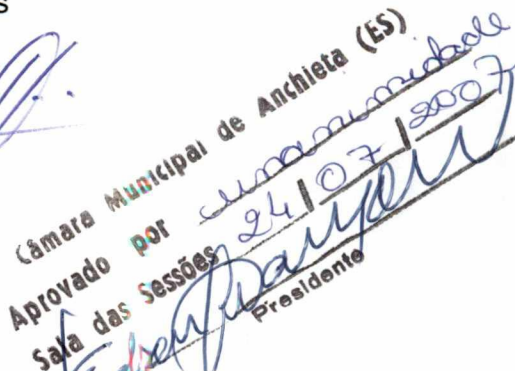 s
Câmara Municipal de Anchieta (ES)
Aprovado por unanimidade
Sala das Sessões 24/07/2007
Presidente